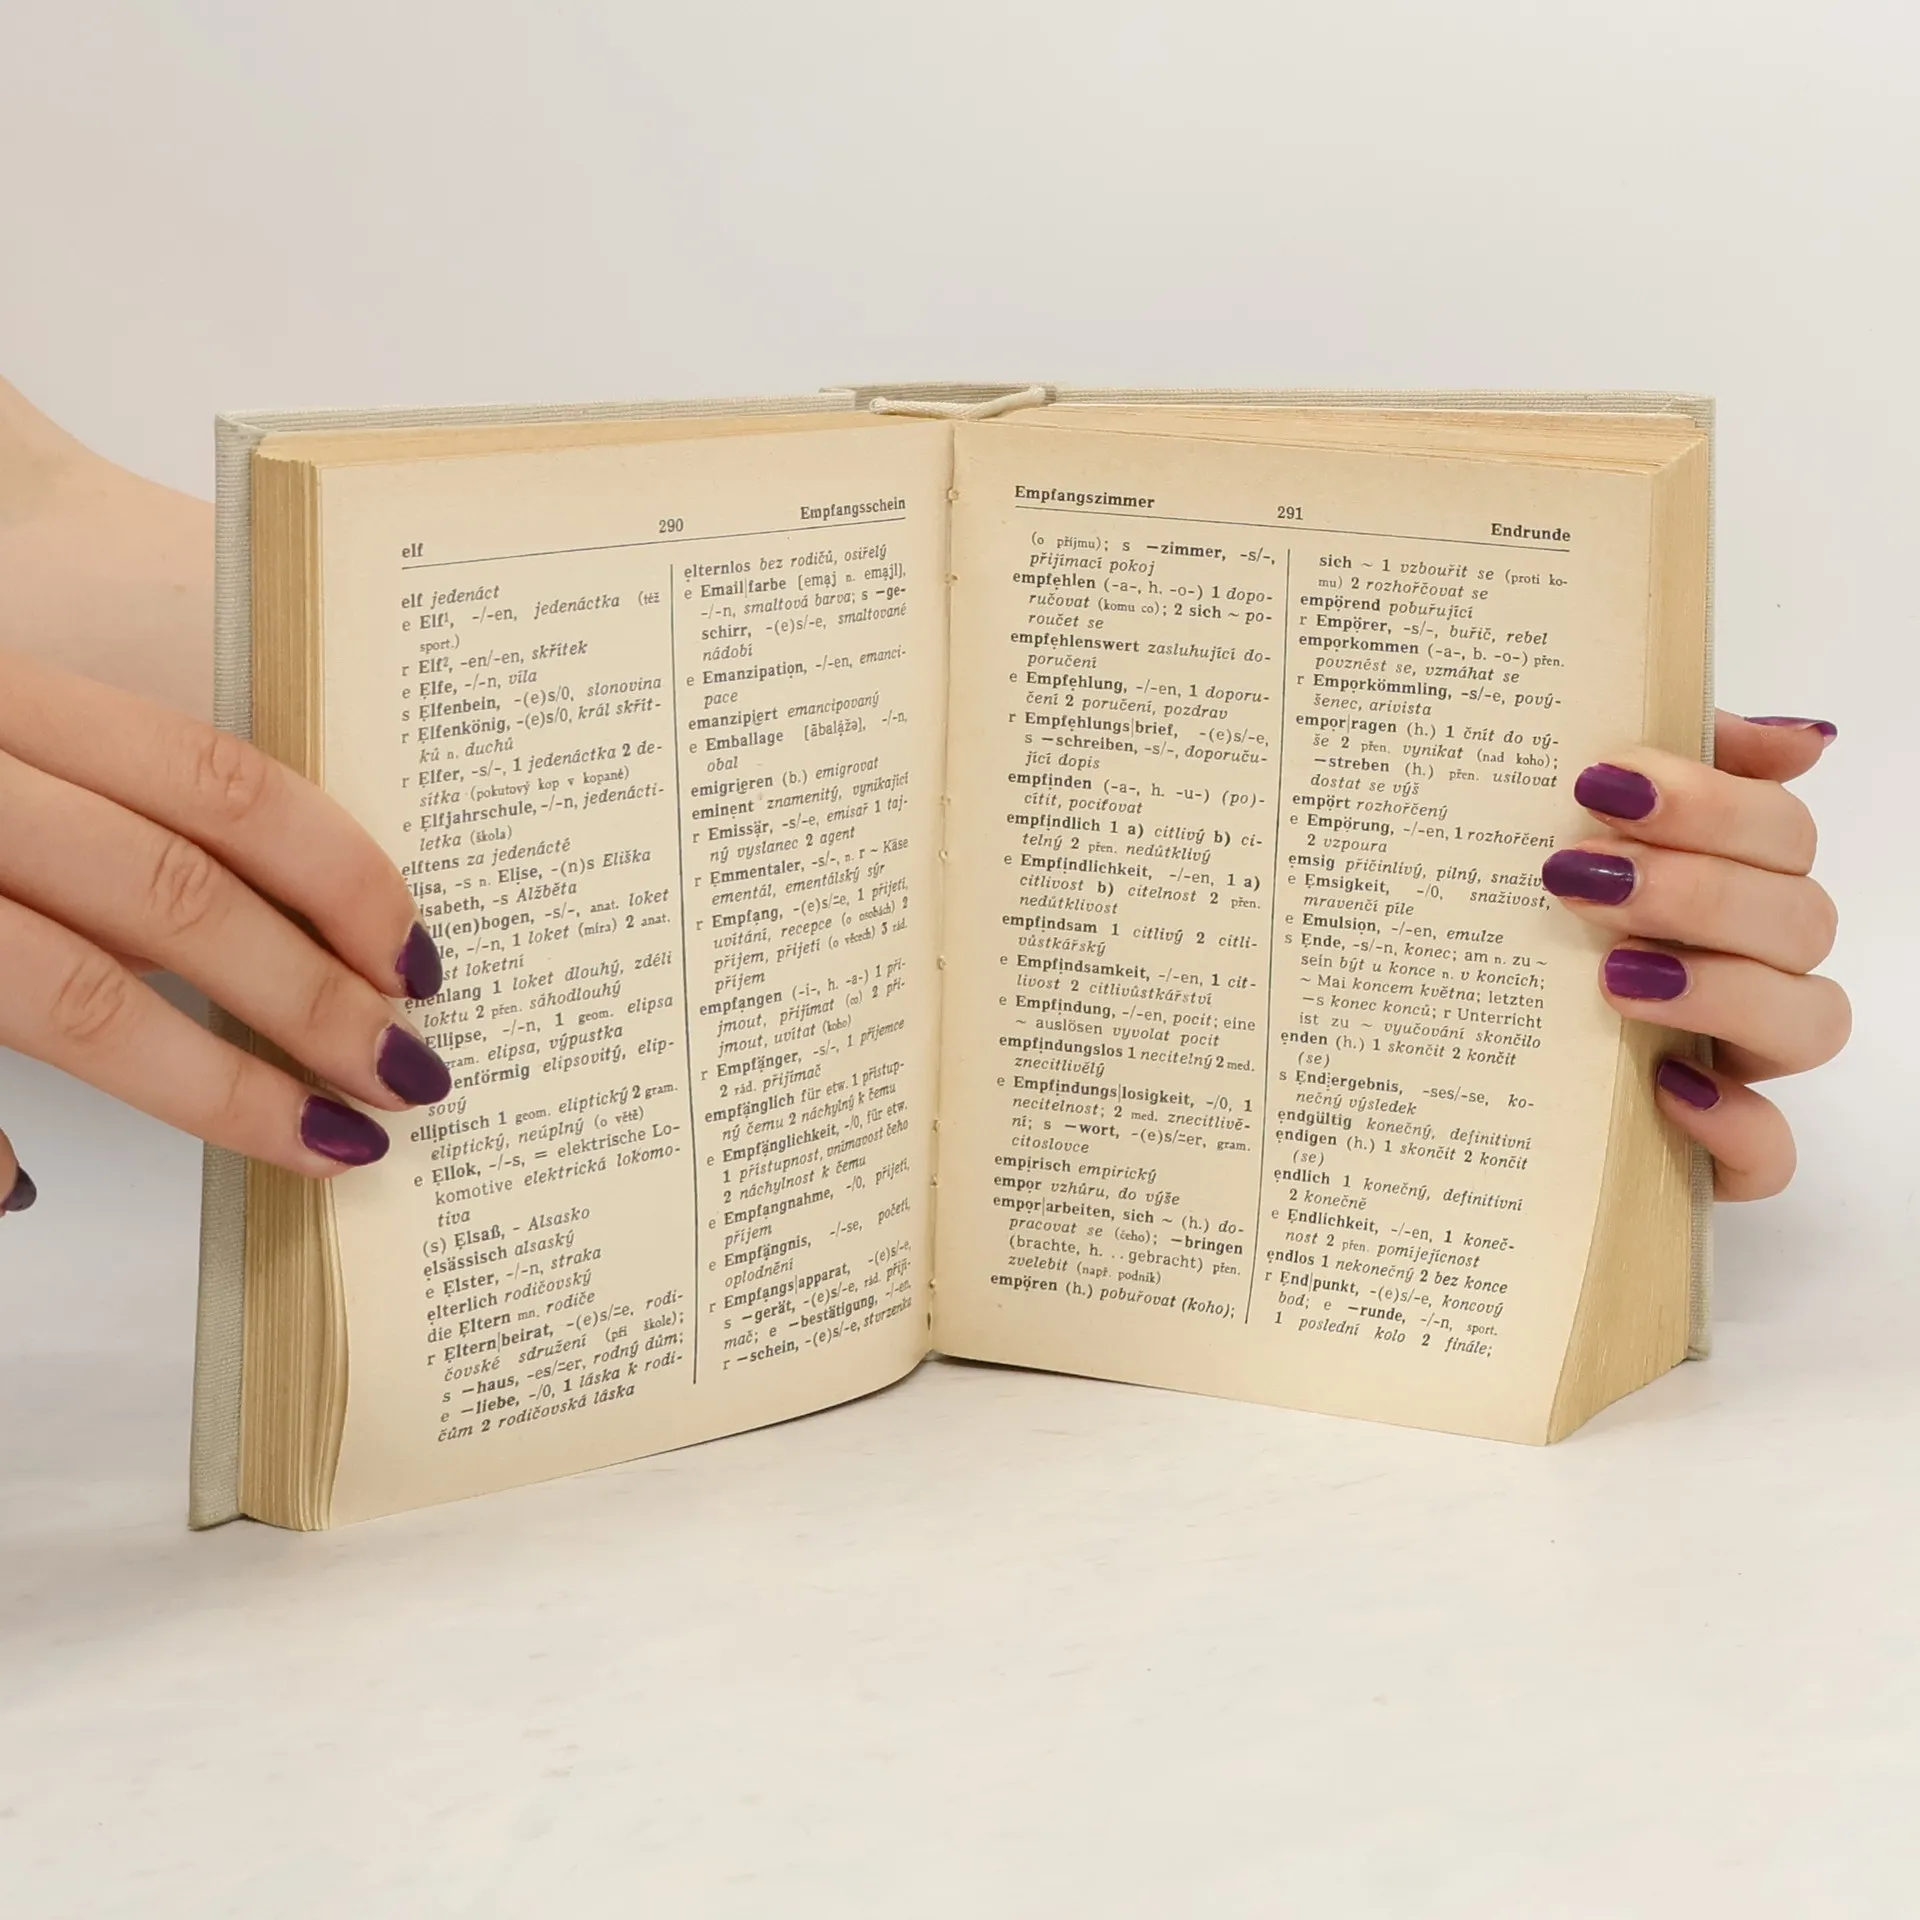 elf
290
Empfangsschein
elf jedenáct
e Elf¹, -/-en, jedenáctka (též
sport.)
r Elf², -en/-en, skřítek
e Elfe, -/-n, víla
s Elfenbein, -(e)s/0, slonovina
r Elfenkönig, -(e)s/0, král skřít-
ků n. duchů
r Elfer, -s/-, 1 jedenáctka 2 de-
sítka (pokutový kop v kopané)
e Elfjahrschule, -/-n, jedenácti-
letka (škola)
elftens za jedenácté
Elisa, -s n. Elise, -(n)s Eliška
isabeth, -s Alžběta
ll(en)bogen, -s/-, anat. loket
lle, -/-n, 1 loket (míra) 2 anat.
st loketní
ellenlang 1 loket dlouhý, zdéli
loktu 2 přen. sáhodlouhý
Ellipse, -/-n, 1 geom. elipsa
gram. elipsa, výpustka
enförmig elipsovitý, elip-
sový
elliptisch 1 geom. eliptický 2 gram.
eliptický, neúplný (o větě)
e Ellok, -/-s, = elektrische Lo-
komotive elektrická lokomo-
tiva
(s) Elsaß, - Alsasko
elsässisch alsaský
e Elster, -/-n, straka
elterlich rodičovský
die Eltern mn. rodiče
r Eltern|beirat, -(e)s/=e, rodi-
čovské sdružení (při škole);
s —haus, -es/=er, rodný dům;
e —liebe, -/0, 1 láska k rodi-
čům 2 rodičovská láska
elternlos bez rodičů, osiřelý
e Email|farbe [emaj n. emajl],
-/-n, smaltová barva; s —ge-
schirr, -(e)s/-e, smaltované
nádobí
e Emanzipation, -/-en, emanci-
pace
emanzipiert emancipovaný
e Emballage [ãbalážə], -/-n,
obal
emigrieren (b.) emigrovat
eminent znamenitý, vynikající
r Emissär, -s/-e, emisař 1 taj-
ný vyslanec 2 agent
r Emmentaler, -s/-, n. r ~ Käse
ementál, ementálský sýr
r Empfang, -(e)s/=e, 1 přijetí,
uvítání, recepce (o osobách) 2
příjem, přijetí (o věcech) 3 rád.
příjem
empfangen (-i-, h. -a-) 1 při-
jmout, přijímat (co) 2 při-
jmout, uvítat (koho)
r Empfänger, -s/-, 1 příjemce
2 rád. přijímač
empfänglich für etw. 1 přístup-
ný čemu 2 náchylný k čemu
e Empfänglichkeit, -/0, für etw.
1 přístupnost, vnímavost čeho
2 náchylnost k čemu
e Empfangnahme, -/0, přijetí,
příjem
e Empfängnis, -/-se, početí,
oplodnění
r Empfangs|apparat, -(e)s/-e,
s —gerät, -(e)s/-e, rád. přijí-
mač; e —bestätigung, -/-en,
r —schein, -(e)s/-e, stvrzenka
Empfangszimmer
291
Endrunde
(o příjmu); s —zimmer, -s/-,
přijímací pokoj
empfehlen (-a-, h. -o-) 1 dopo-
ručovat (komu co); 2 sich ~ po-
roučet se
empfehlenswert zasluhující do-
poručení
e Empfehlung, -/-en, 1 doporu-
čení 2 poručení, pozdrav
r Empfehlungs|brief, -(e)s/-e,
s —schreiben, -s/-, doporuču-
jící dopis
empfinden (-a-, h. -u-) (po)-
cítit, pociťovat
empfindlich 1 a) citlivý b) ci-
telný 2 přen. nedůtklivý
e Empfindlichkeit, -/-en, 1 a)
citlivost b) citelnost 2 přen.
nedůtklivost
empfindsam 1 citlivý 2 citli-
vůstkářský
e Empfindsamkeit, -/-en, 1 cit-
livost 2 citlivůstkářství
e Empfindung, -/-en, pocit; eine
~ auslösen vyvolat pocit
empfindungslos 1 necitelný 2 med.
znecitlivělý
e Empfindungs|losigkeit, -/0, 1
necitelnost; 2 med. znecitlivě-
ní; s —wort, -(e)s/=er, gram.
citoslovce
empirisch empirický
empor vzhůru, do výše
empor|arbeiten, sich ~ (h.) do-
pracovat se (čeho); —bringen
(brachte, h. . . gebracht) přen.
zvelebit (např. podnik)
empören (h.) pobuřovat (koho);
sich ~ 1 vzbouřit se (proti ko-
mu) 2 rozhořčovat se
empörend pobuřující
r Empörer, -s/-, buřič, rebel
emporkommen (-a-, b. -o-) přen.
povznést se, vzmáhat se
r Emporkömmling, -s/-e, pový-
šenec, arivista
empor|ragen (h.) 1 čnít do vý-
še 2 přen. vynikat (nad koho);
—streben (h.) přen. usilovat
dostat se výš
empört rozhořčený
e Empörung, -/-en, 1 rozhořčení
2 vzpoura
emsig přičinlivý, pilný, snaživ
e Emsigkeit, -/0, snaživost,
mravenčí píle
e Emulsion, -/-en, emulze
s Ende, -s/-n, konec; am n. zu ~
sein být u konce n. v koncích;
~ Mai koncem května; letzten
—s konec konců; r Unterricht
ist zu ~ vyučování skončilo
enden (h.) 1 skončit 2 končit
(se)
s End|ergebnis, -ses/-se, ko-
nečný výsledek
endgültig konečný, definitivní
endigen (h.) 1 skončit 2 končit
(se)
endlich 1 konečný, definitivní
2 konečně
e Endlichkeit, -/-en, 1 koneč-
nost 2 přen. pomíjejícnost
endlos 1 nekonečný 2 bez konce
r End|punkt, -(e)s/-e, koncový
bod; e —runde, -/-n, sport.
1 poslední kolo 2 finále;